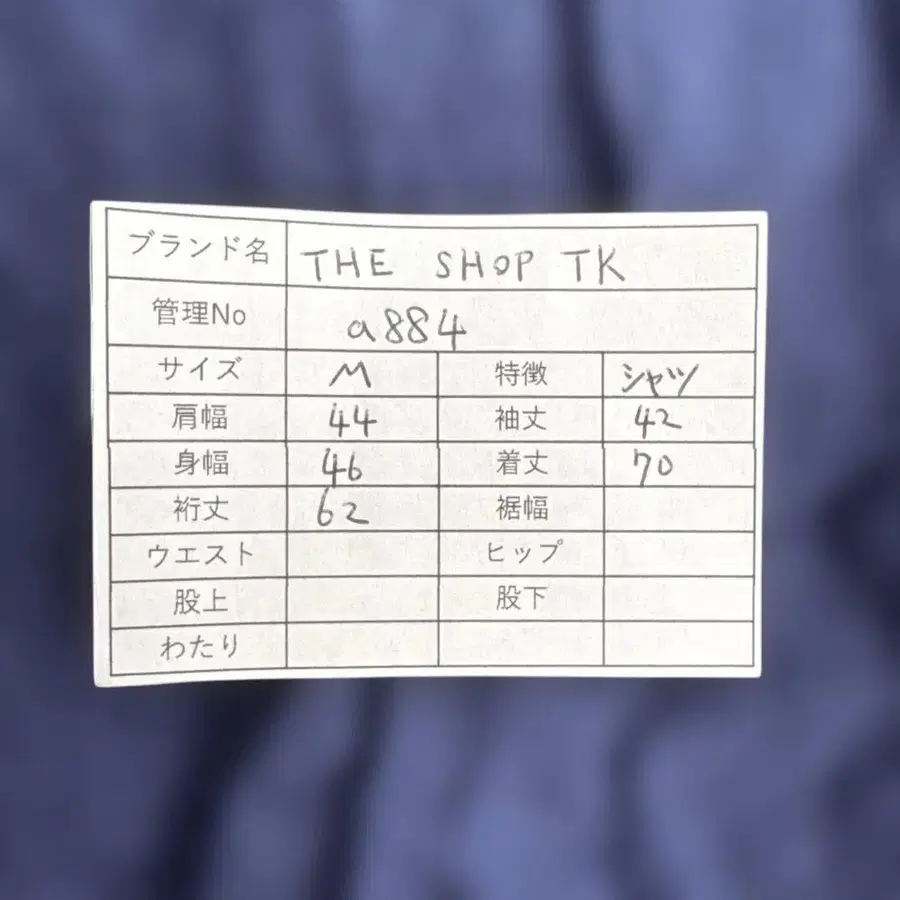 ブランド名 THE SHOP TK
管理No a884
サイズ M 特徴 シャツ
肩幅 44 袖丈 42
身幅 46 着丈 70
裄丈 62 裾幅
ウエスト ヒップ
股上 股下
わたり